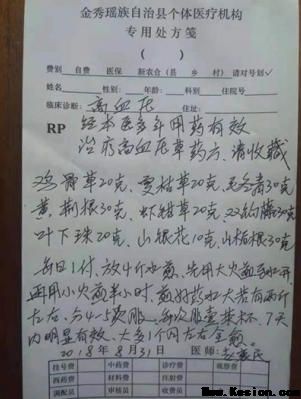 金秀瑶族自治县个体医疗机构
专用处方笺
( )
费别: 自费 医保 新农合(县 乡 村) 请对号划√
姓名: 性别: 年龄: 科别: 住院号
临床诊断: 高血压 住址:
RP 经本医多年用药有效
治疗高血压草药方, 请收藏
鸡骨草20克, 雷公草20克, 毛冬青30克
黄荆根30克, 虾钳草20克, 双钩藤30克
叶下珠20克, 山银花10克, 山枝根30克
每日1付, 放4斤水煎, 先用大火煎
再用小火煎半小时, 煎好药水大若有两斤
左右, 分4-5次服, 每次服壹茶杯, 7天
内明显有效、大多1个月左右全愈。
2018年8月31日 医师:
挂号费 中药费 诊疗费 观察费
西药费 材料费 注射费
调配员 审核员 收费员
www.Kesion.com